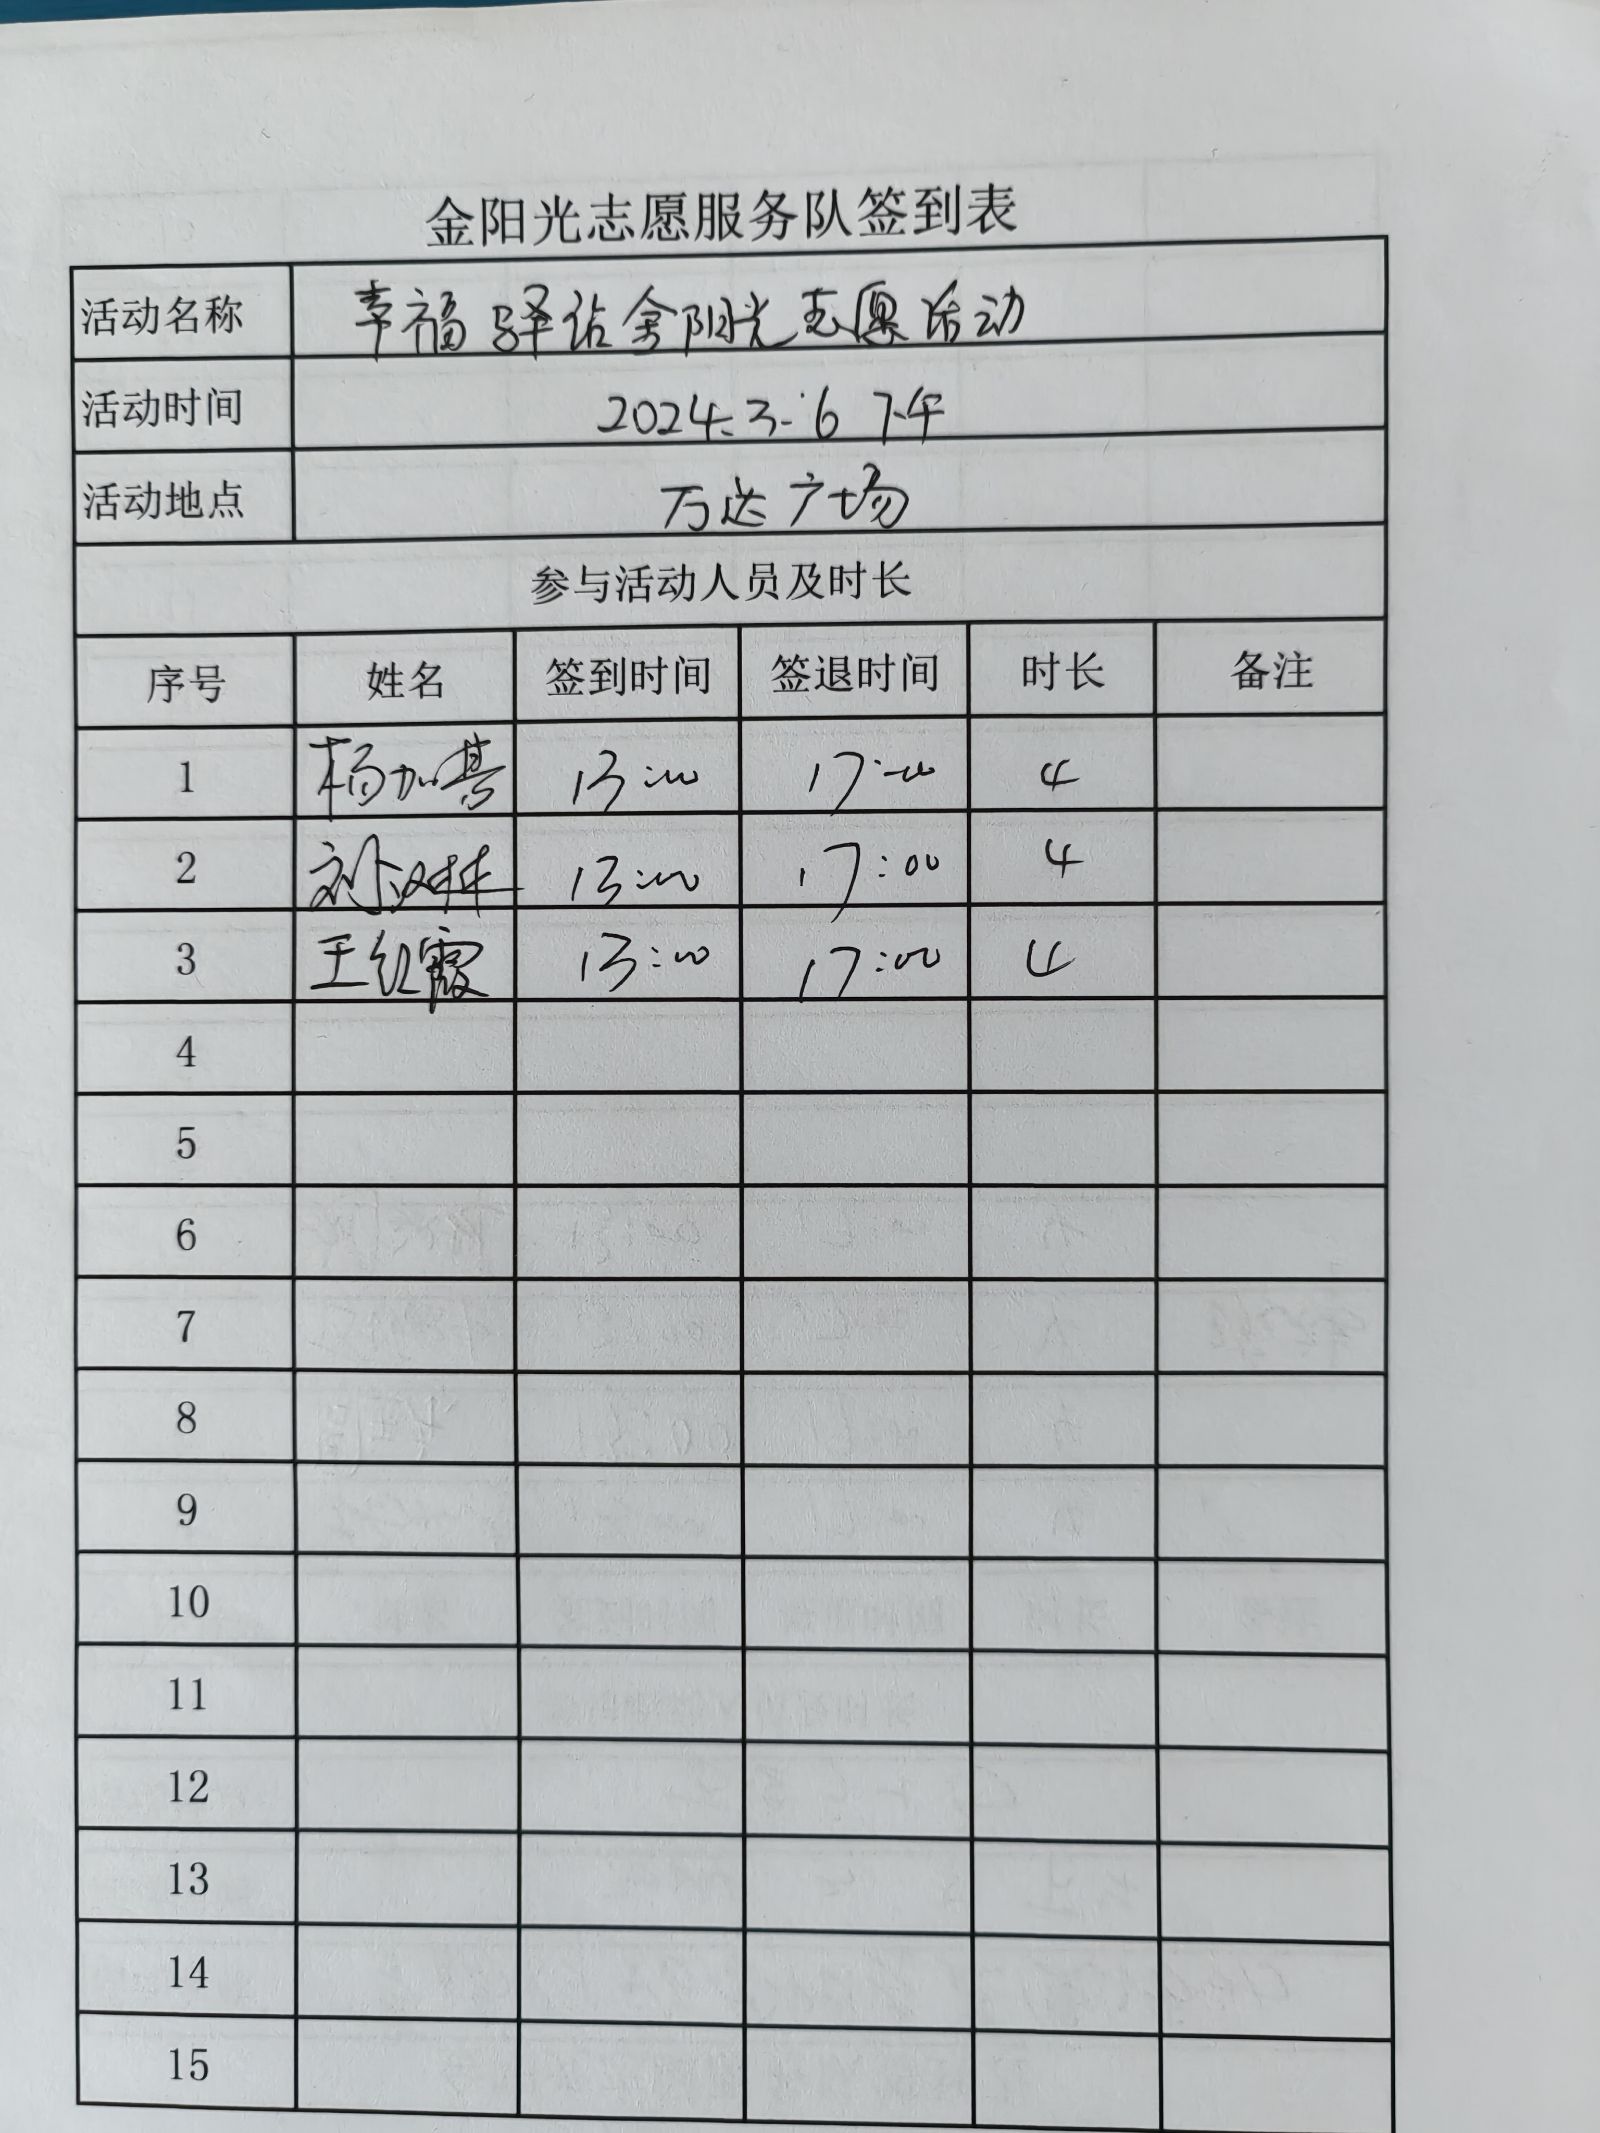 金阳光志愿服务队签到表
活动名称 幸福驿站金阳光志愿活动
活动时间 2024.3.6 下午
活动地点 万达广场
参与活动人员及时长
序号 姓名 签到时间 签退时间 时长 备注
1 杨加 13:00 17:00 4
2 刘汉林 13:00 17:00 4
3 王红霞 13:00 17:00 4
4
5
6
7
8
9
10
11
12
13
14
15